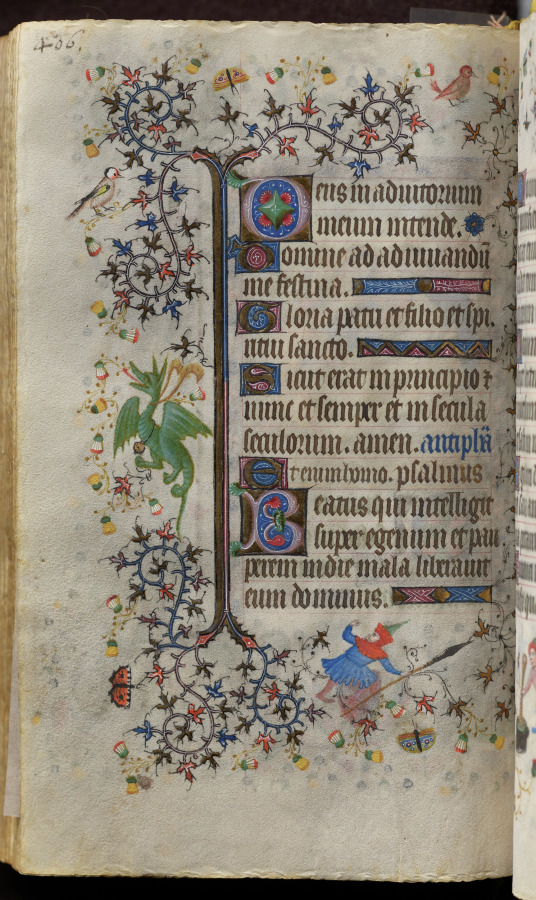 406.
Deus in adiutorium
meum intende.
Domine ad adiuuandū
me festina.
Gloria patri et filio et spi
ritui sancto.
Sicut erat in principio ⁊
nunc et semper et in secula
seculorum. amen. antiphā
Etenim homo. psalmus
Beatus qui intelligit
super egenum et pau
perem in die mala liberauit
eum dominus.